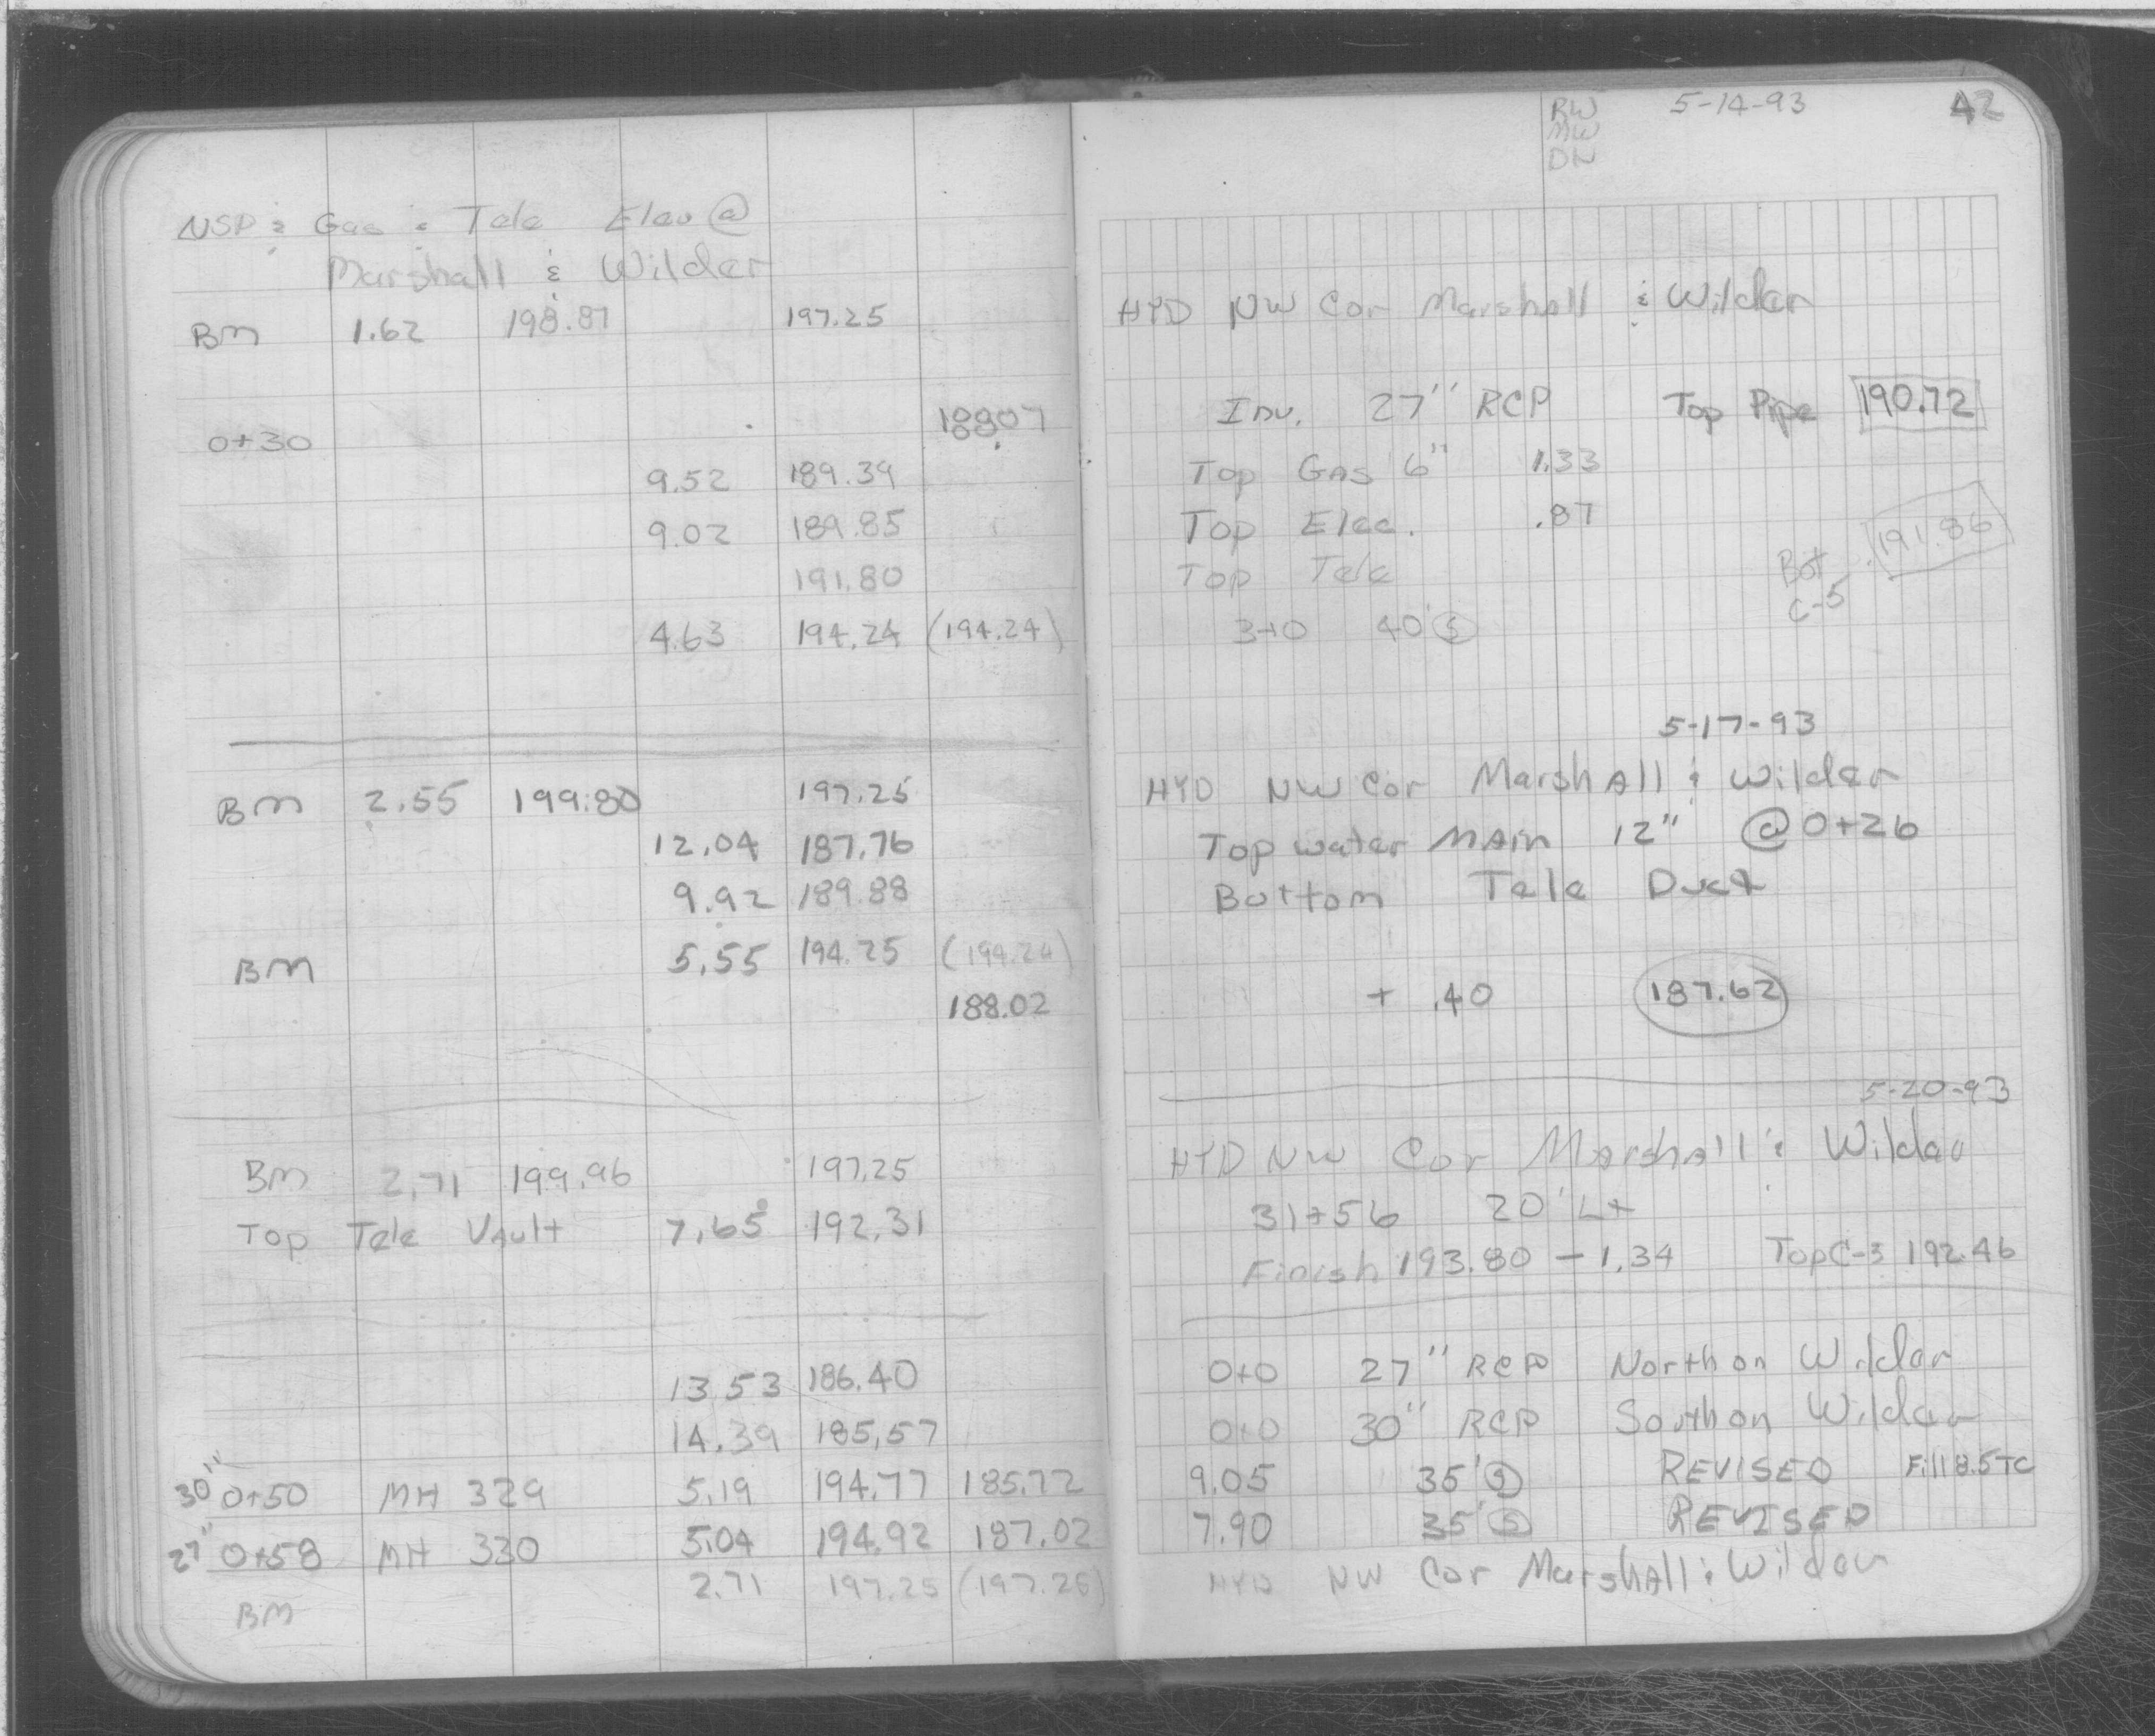 NSP & Gas & Tele Elev @
Marshall & Wilder
BM 1.62 198.87 197.25
0+30 188.07
9.52 189.39
9.02 189.85
191.80
4.63 194.24 (194.24)
BM 2.55 199.80 197.25
12.04 187.76
9.92 189.88
BM 5.55 194.25 (194.24)
188.02
BM 2.71 199.96 197.25
Top Tele Vault 7.65 192.31
13.53 186.40
14.39 185.57
30" 0+50 MH 329 5.19 194.77 185.72
27" 0+58 MH 330 5.04 194.92 187.02
2.71 197.25 (197.25)
BM
RW 5-14-93 42
MW
DN
HYD NW Cor Marshall & Wilder
Inv. 27" RCP Top Pipe 190.72
Top Gas 6" 1.33
Top Elec. .87
Top Tele Bot 191.86
C-5
3+0 40' S
5-17-93
HYD NW Cor Marshall & Wilder
Top water Main 12" @ 0+26
Bottom Tele Duct
+ .40 187.62
5-20-93
HYD NW Cor Marshall & Wilder
31+56 20' Lt
Finish 193.80 - 1.34 Top C-3 192.46
0+0 27" RCP North on Wilder
0+0 30" RCP South on Wilder
9.05 35' REVISED Fill 8.5 TC
7.90 35' S REVISED
HYD NW Cor Marshall & Wilder